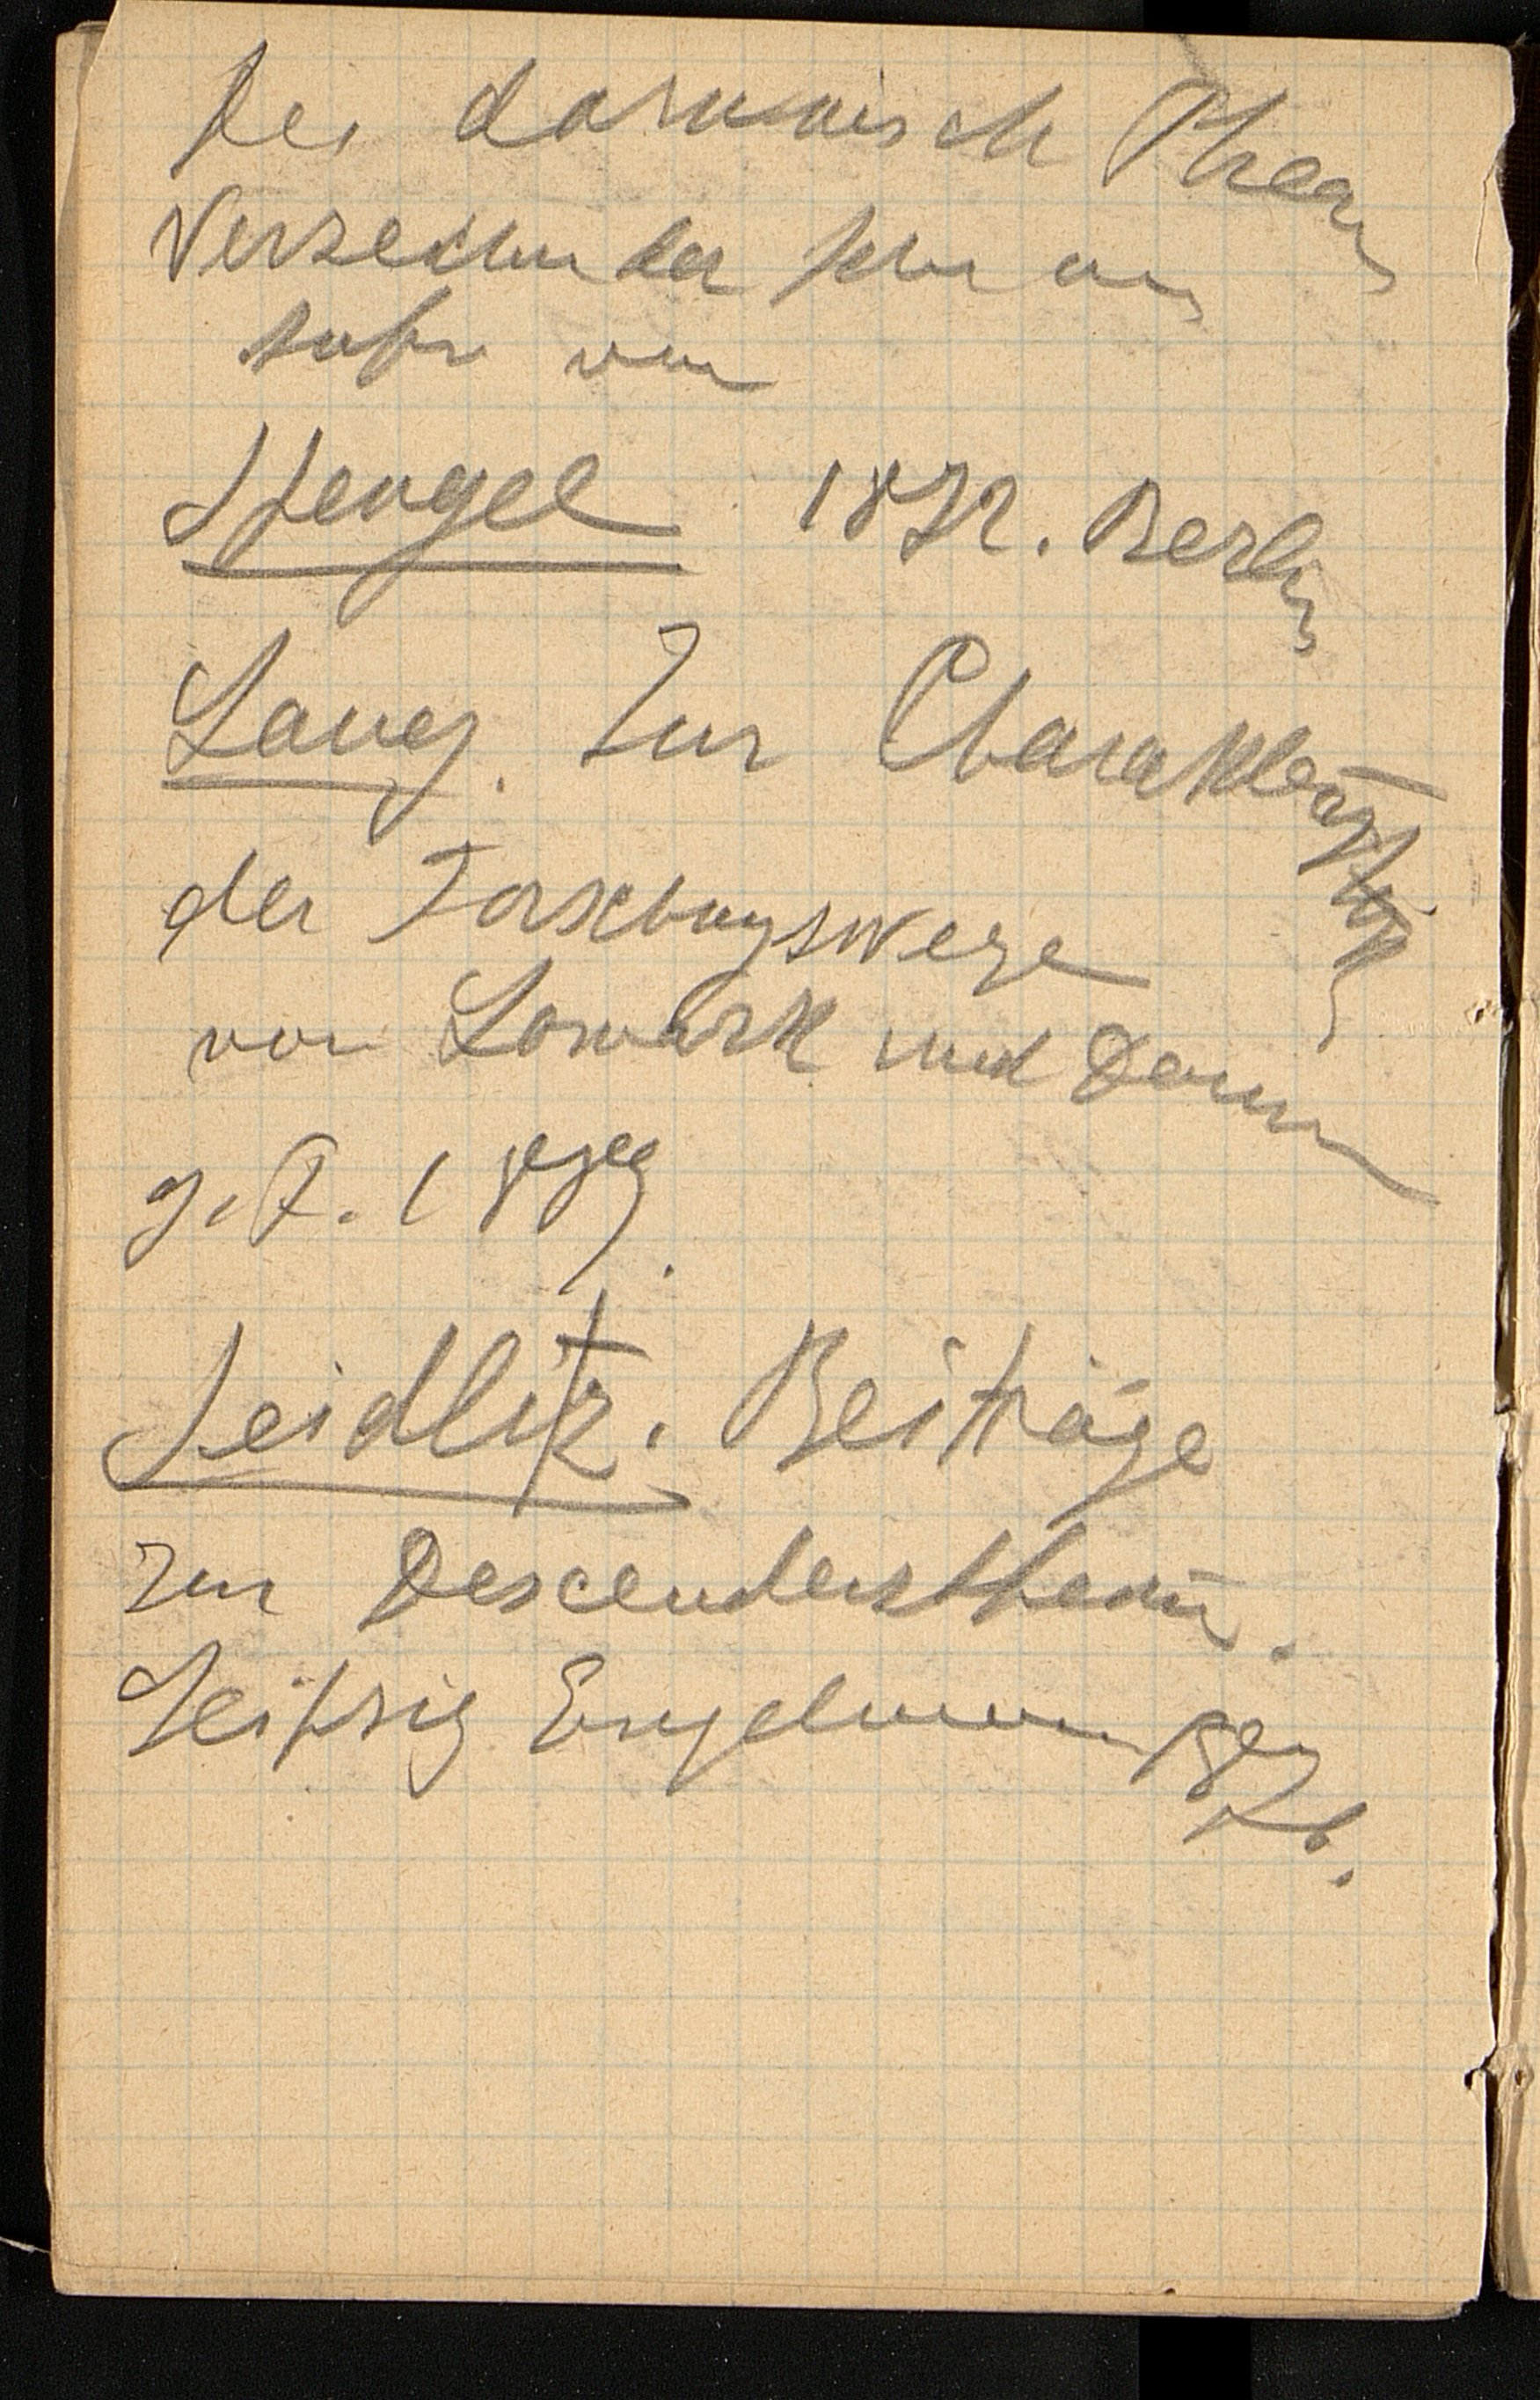 Die darwinisch Theorie
Verzeichn der
von
Spengel 1872. Berlin
Lang. Zur Charakteristik
der Forschungswege
von Lamark und Darwin
J. A. 1889.
Seidlitz. Beiträge
zur Descendenztheorie.
Leipzig Engelmann 1876.